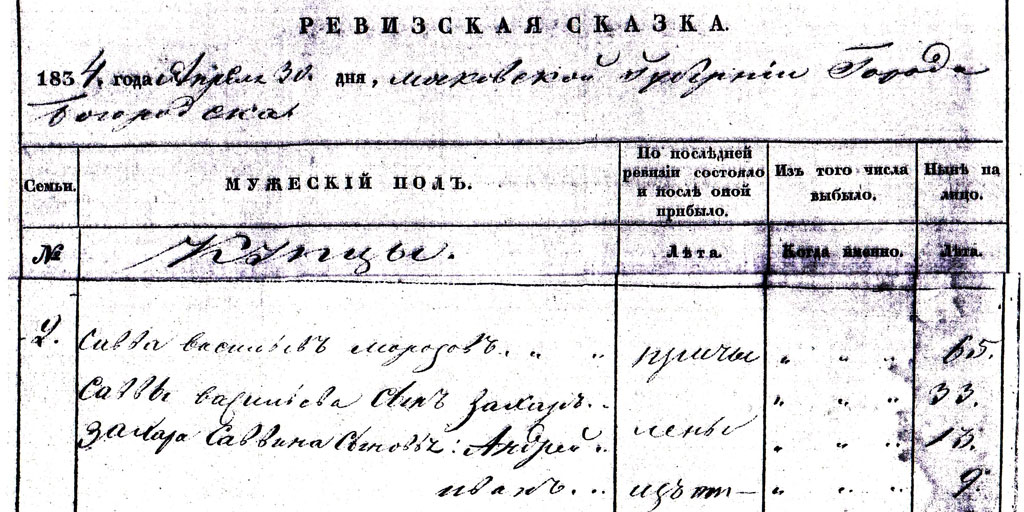 РЕВИЗСКАЯ СКАЗКА.
1834. года Апреля 30. дня, московской Губернии Города
Богородска
Семьи.
МУЖЕСКІЙ ПОЛЪ.
По послѣдней ревизіи состояло и послѣ оной прибыло.
Изъ того числа выбыло.
Нынѣ на лицо.
№
Купцы.
Лѣта.
Когда именно.
Лѣта.
2. Савва васильевъ морозовъ. " " причи " " " 65.
Саввы васильева сынъ Захаръ. " " " 33.
Захара Саввина сыновья: Андрей " лены " " " 13.
иванъ. " изъ " " " 9